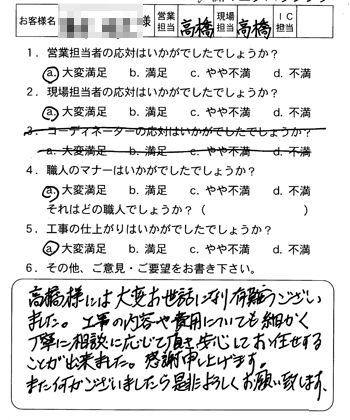 お客様名 様 営業担当 高橋 現場担当 高橋 IC担当
1．営業担当者の応対はいかがでしたでしょうか？
a. 大変満足 b. 満足 c. やや不満 d. 不満
2．現場担当者の応対はいかがでしたでしょうか？
a. 大変満足 b. 満足 c. やや不満 d. 不満
3．コーディネーターの応対はいかがでしたでしょうか？
a. 大変満足 b. 満足 c. やや不満 d. 不満
4．職人のマナーはいかがでしたでしょうか？
a. 大変満足 b. 満足 c. やや不満 d. 不満
それはどの職人でしょうか？（ ）
5．工事の仕上がりはいかがでしたでしょうか？
a. 大変満足 b. 満足 c. やや不満 d. 不満
6．その他、ご意見・ご要望をお書き下さい。
高橋様には大変お世話になり有難うござい
ました。工事の内容や費用についても細かく
丁寧に相談に応じて頂き安心してお任せする
ことが出来ました。感謝申し上げます。
また何かございましたら是非よろしくお願い致します。